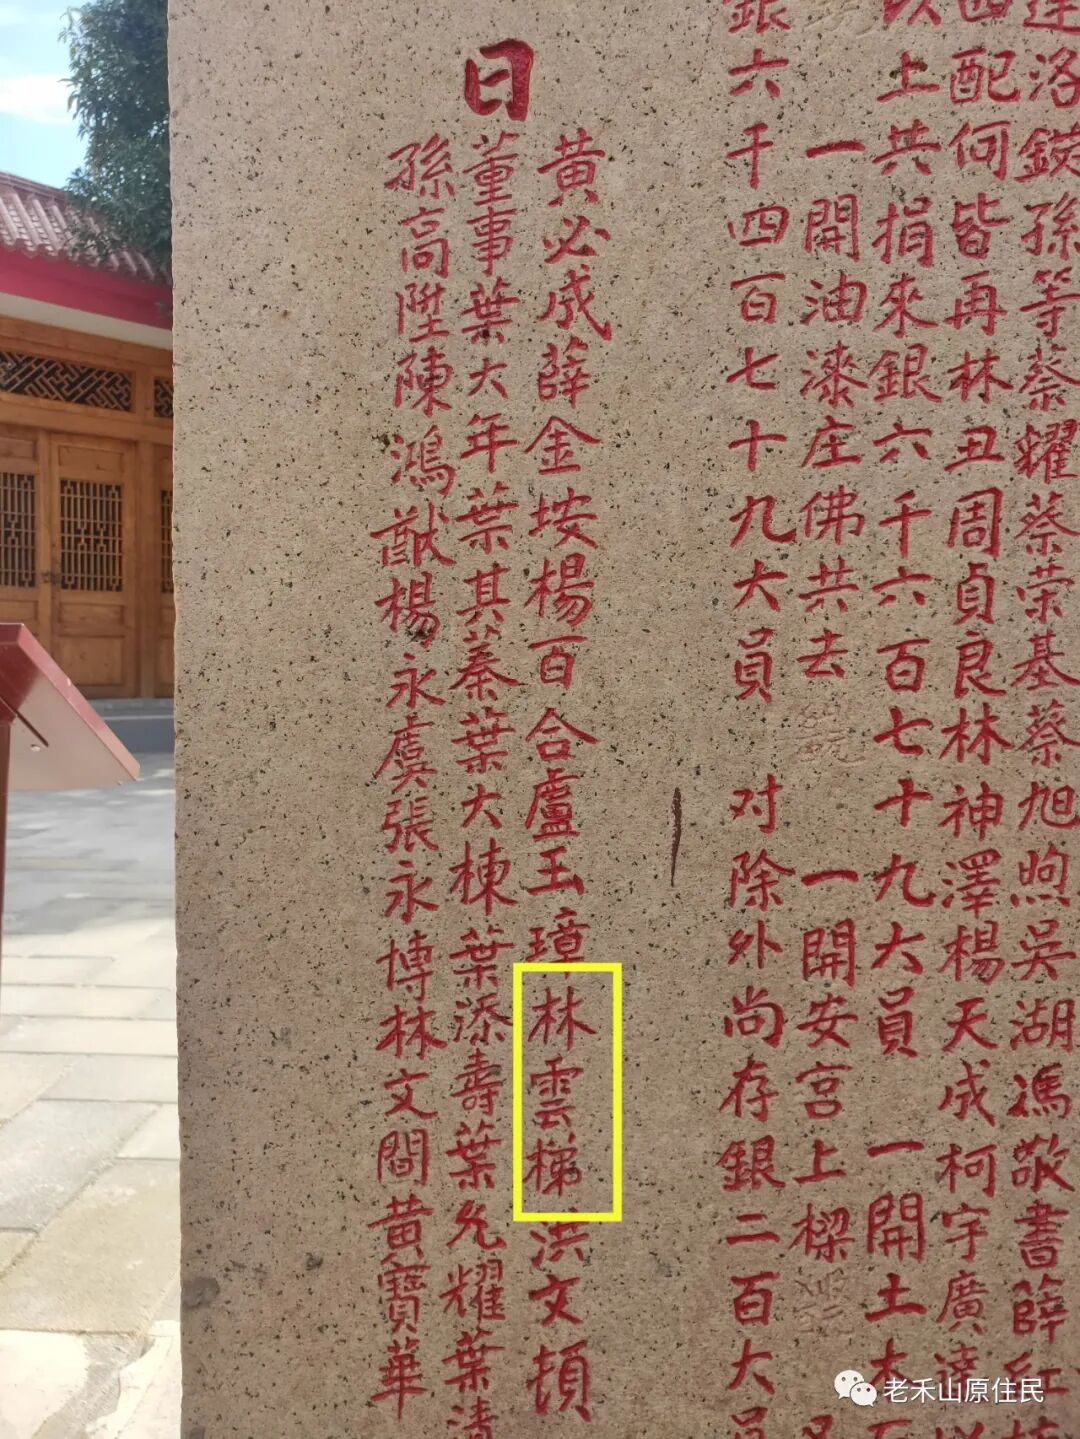 達洛鍈孫等蔡耀蔡荣基蔡旭煦吳湖馮敬書薛紅
四配何皆再林丑周貞良林神澤楊天成柯宇廣
以上共捐來銀六千六百七十九大員 一開土木石
一開油漆庄佛共去 一開安宮上樑
銀六千四百七十九大員 对除外尚存銀二百大員
黃必成薛金垵楊百合盧玉璋林雲梯洪文頓
日
董事葉大年葉其蓁葉大棟葉添壽葉允耀葉清
孫高陞陳鴻猷楊永虞張永博林文閣黃寶華
老禾山原住民